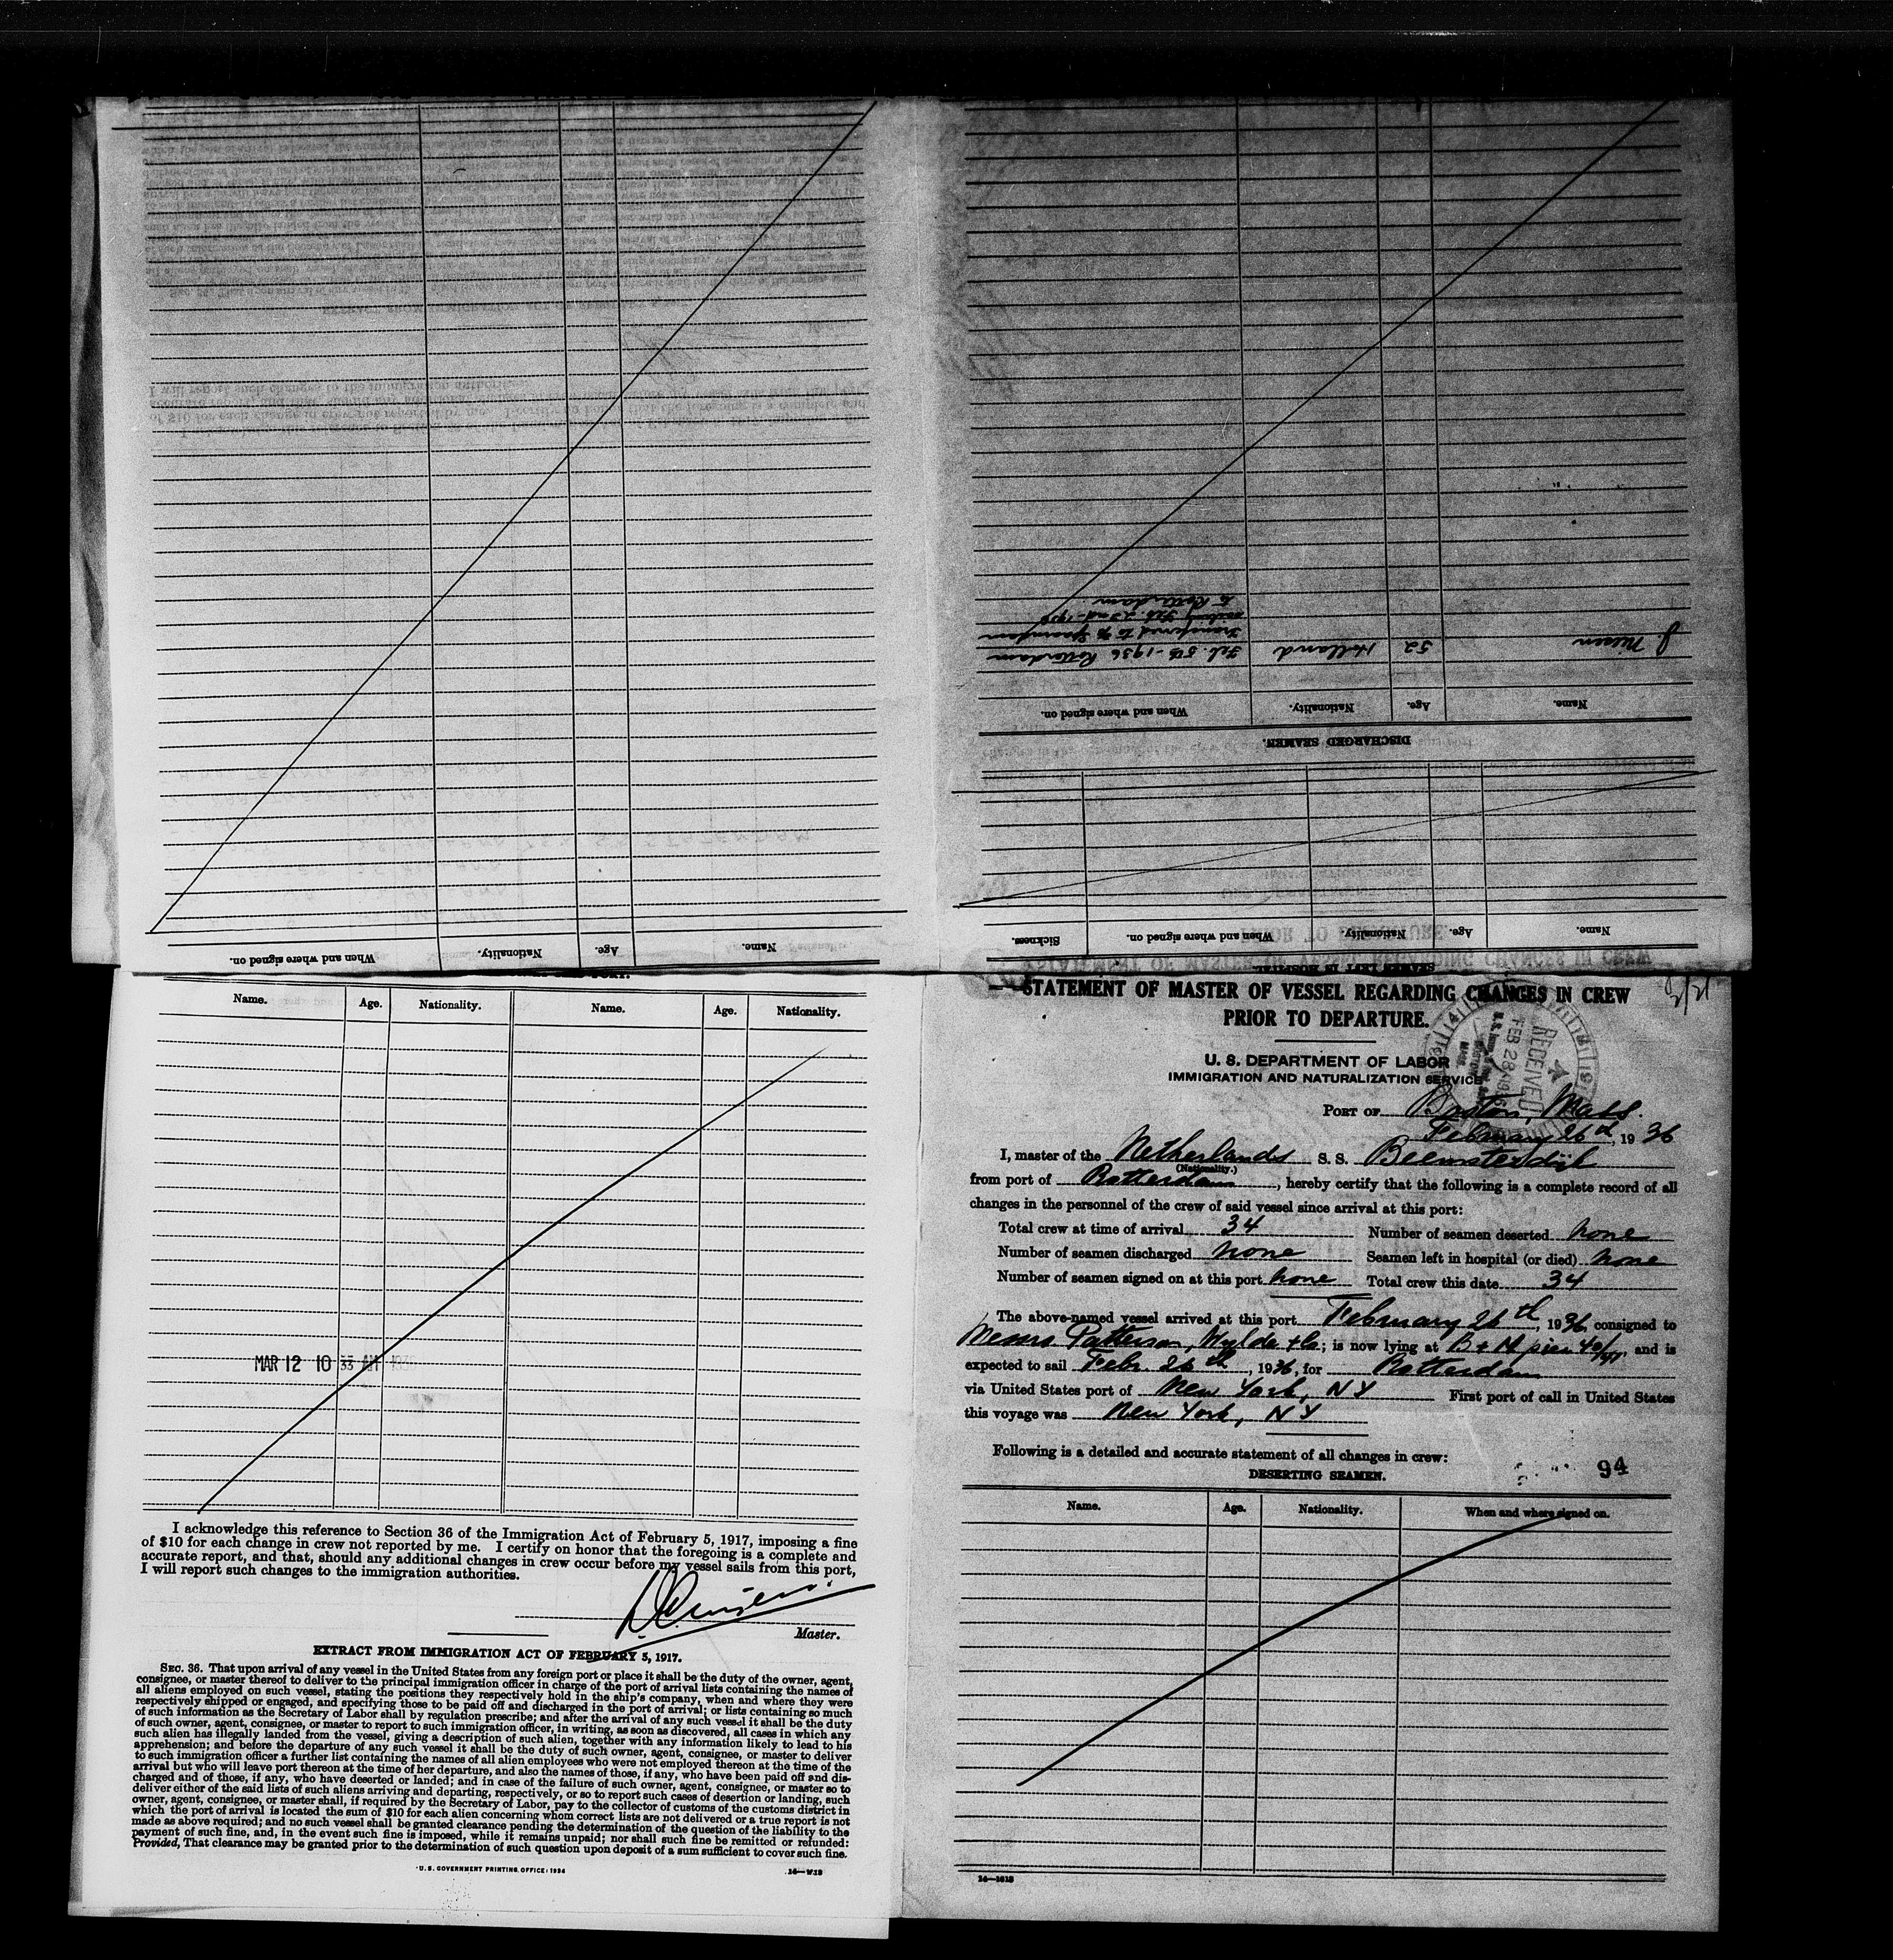 When and where signed on.
Nationality.
Age.
Name.
Feb. 5th - 1936 Rotterdam
Transferred to
Feb. 22nd - 1936
to Rotterdam
Holland
52
J. Nilsen
When and where signed on.
Nationality.
Age.
Name.
DISCHARGED SEAMEN.
Sickness.
When and where signed on.
Nationality.
Age.
Name.
SEAMEN LEFT IN HOSPITAL.
Name. Age. Nationality. Name. Age. Nationality.
MAR 12 10 33 AM 1936
I acknowledge this reference to Section 36 of the Immigration Act of February 5, 1917, imposing a fine
of $10 for each change in crew not reported by me. I certify on honor that the foregoing is a complete and
accurate report, and that, should any additional changes in crew occur before my vessel sails from this port,
I will report such changes to the immigration authorities.
Master.
EXTRACT FROM IMMIGRATION ACT OF FEBRUARY 5, 1917.
SEC. 36. That upon arrival of any vessel in the United States from any foreign port or place it shall be the duty of the owner, agent,
consignee, or master thereof to deliver to the principal immigration officer in charge of the port of arrival lists containing the names of
all aliens employed on such vessel, stating the positions they respectively hold in the ship's company, when and where they were
respectively shipped or engaged, and specifying those to be paid off and discharged in the port of arrival; or lists containing so much
of such information as the Secretary of Labor shall by regulation prescribe; and after the arrival of any such vessel it shall be the duty
of such owner, agent, consignee, or master to report to such immigration officer, in writing, as soon as discovered, all cases in which any
such alien has illegally landed from the vessel, giving a description of such alien, together with any information likely to lead to his
apprehension; and before the departure of any such vessel it shall be the duty of such owner, agent, consignee, or master to deliver
to such immigration officer a further list containing the names of all alien employees who were not employed thereon at the time of the
arrival but who will leave port thereon at the time of her departure, and also the names of those, if any, who have been paid off and dis-
charged and of those, if any, who have deserted or landed; and in case of the failure of such owner, agent, consignee, or master so to
deliver either of the said lists of such aliens arriving and departing, respectively, or so to report such cases of desertion or landing, such
owner, agent, consignee, or master shall, if required by the Secretary of Labor, pay to the collector of customs of the customs district in
which the port of arrival is located the sum of $10 for each alien concerning whom correct lists are not delivered or a true report is not
made as above required; and no such vessel shall be granted clearance pending the determination of the question of the liability to the
payment of such fine, and, in the event such fine is imposed, while it remains unpaid; nor shall such fine be remitted or refunded:
Provided, That clearance may be granted prior to the determination of such question upon deposit of a sum sufficient to cover such fine.
U. S. GOVERNMENT PRINTING OFFICE: 1934
STATEMENT OF MASTER OF VESSEL REGARDING CHANGES IN CREW
PRIOR TO DEPARTURE.
RECEIVED
FEB 28 1936
U. S. DEPARTMENT OF LABOR
IMMIGRATION AND NATURALIZATION SERVICE
PORT OF Boston, Mass.
February 26th, 1936
I, master of the Netherlands S. S. Beemsterdijk
(Nationality.)
from port of Rotterdam, hereby certify that the following is a complete record of all
changes in the personnel of the crew of said vessel since arrival at this port:
Total crew at time of arrival 34 Number of seamen deserted none
Number of seamen discharged none Seamen left in hospital (or died) none
Number of seamen signed on at this port none Total crew this date 34
The above-named vessel arrived at this port February 26th, 1936, consigned to
Messrs Patterson, Wylde + Co; is now lying at B + M pier and is
expected to sail Febr. 26th, 1936, for Rotterdam
via United States port of New York, NY First port of call in United States
this voyage was New York, NY
Following is a detailed and accurate statement of all changes in crew:
DESERTING SEAMEN.
94
Name. Age. Nationality. When and where signed on.